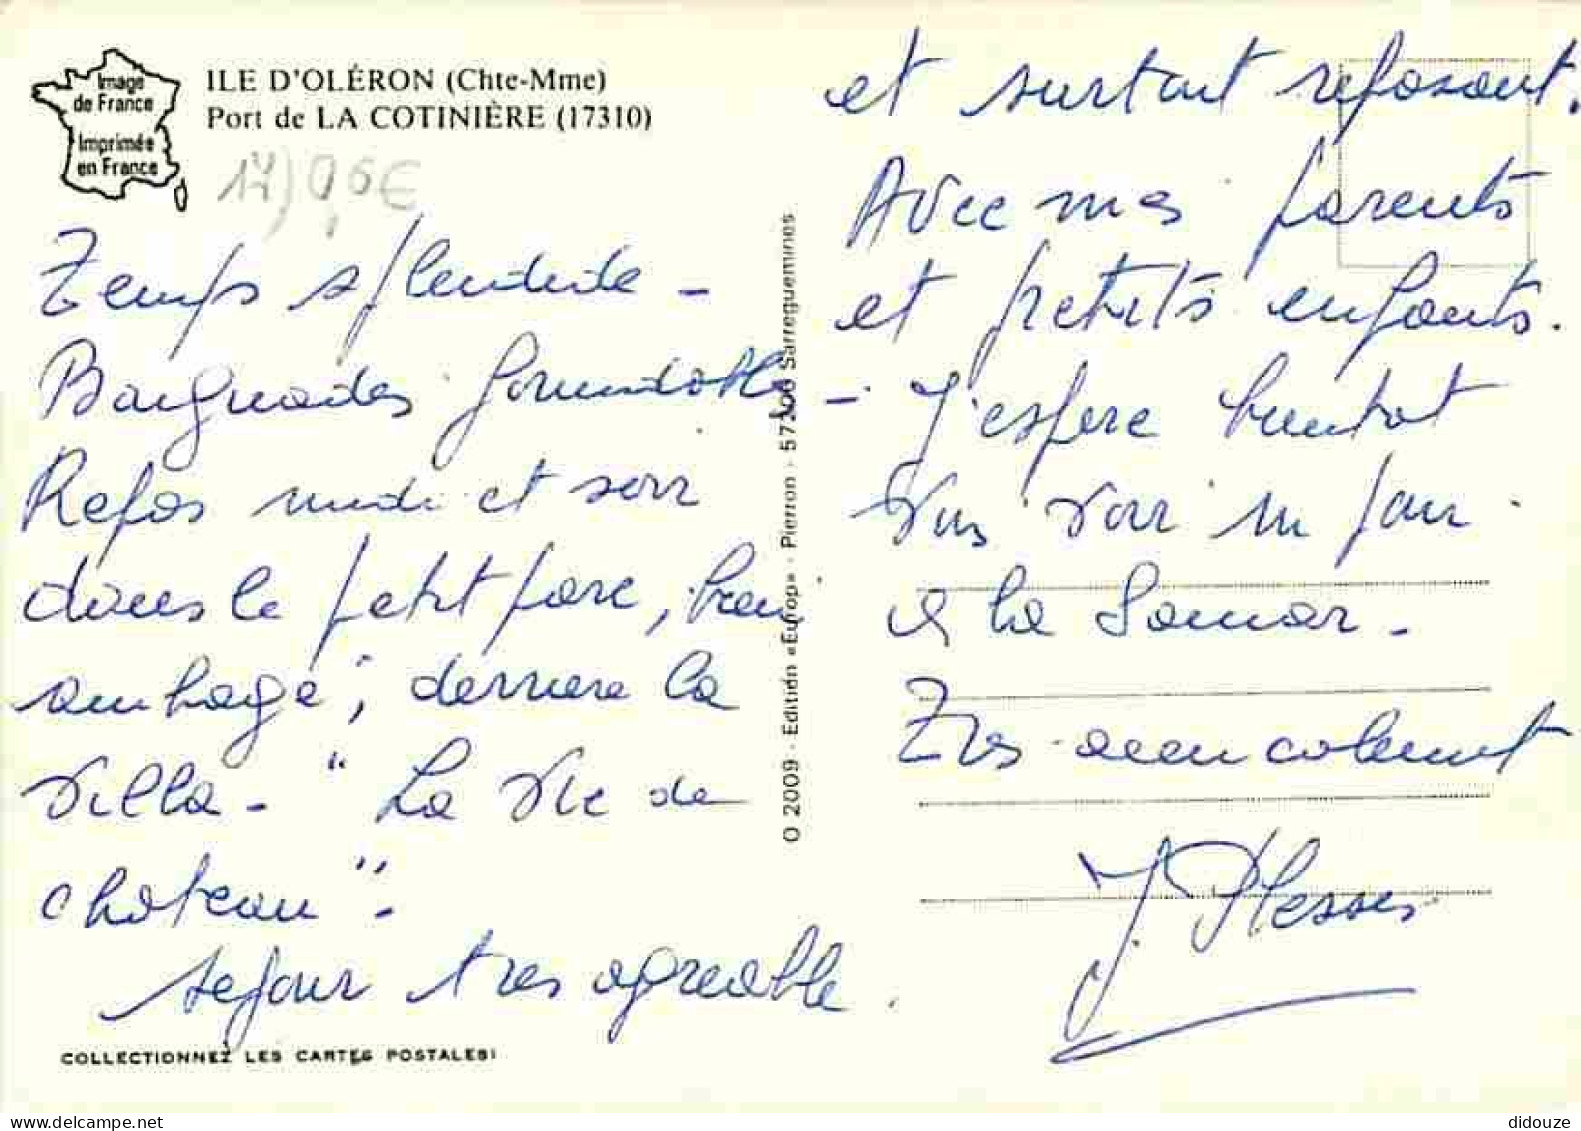 Image
de France
Imprimée
en France
ILE D'OLÉRON (Chte-Mme)
Port de LA COTINIÈRE (17310)
17) 0,6€
Temps splendide -
Baignades formidables -
Repos midi et soir
dans le petit parc, bien
ombragé, derrière la
villa - "La Vie de
chateau" -
sejour tres agreable.
COLLECTIONNEZ LES CARTES POSTALES!
© 2009 - Edition «Europ» - Pierron - 57200 Sarreguemines
et surtout reposant.
Avec mes parents
et petits enfants.
J'espere bientot
vous voir un jour
à la
Tres amicalement
J. Plesses
didouze